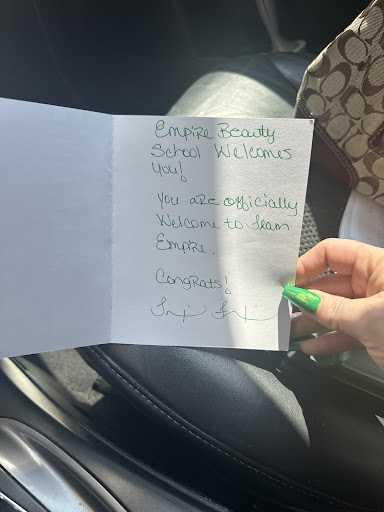 Empire Beauty
School Welcomes
you!
You are officially
Welcome to Team
Empire.
Congrats!